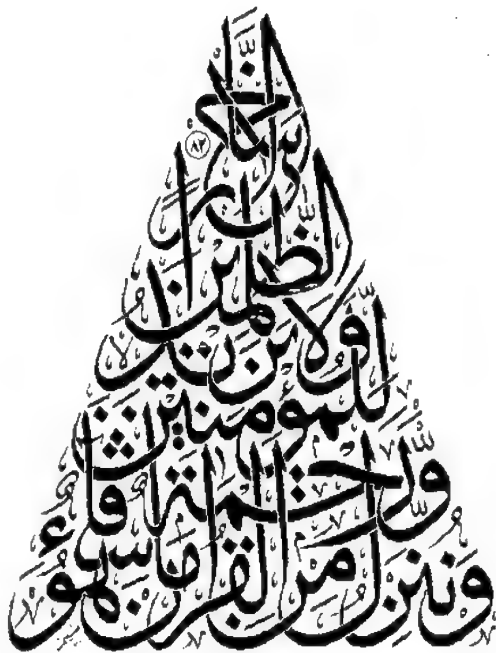 وَنُنَزِّلُ مِنَ الْقُرْآنِ مَا هُوَ
شِفَاءٌ وَرَحْمَةٌ
لِّلْمُؤْمِنِينَ
وَلَا يَزِيدُ
الظَّالِمِينَ
إِلَّا خَسَارًا
٨٢